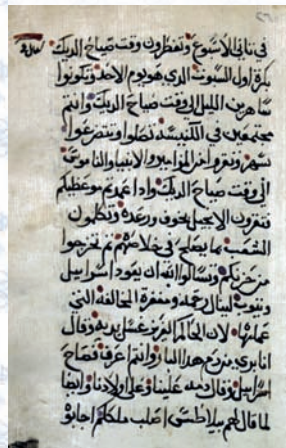 في ثاني الاسبوع وتفطرون وقت صياح الديك
بكرة اول السبوت الدي هو يوم الاحد وتكونوا
ساهرين الليل الى وقت صياح الديك وانتم
مجتمعين في الكنيسه تصلوا وتتضرعوا
سهر وتقروا من المزامير والانبيا والناموس
الى وقت صياح الديك وادا عمدتم موعظيكم
فتقرون الانجيل بخوف ورعده وتكلمون
الشعب بما يصلح في خلاصهم ثم تخرجوا
من حزنكم وتسالوا الله ان يعود اسراييل
ويتوب لينال رحمه ومغفرة المخالفه التي
عملها لان الحاكم الغريب غسل يديه وقال
انا بري من دم هدا البار وانتم اعرف فصاح
اسراييل وقال دمه علينا وعلى اولادنا وايضا
لما قال لهم بيلاطس اصلب ملككم اجابوا